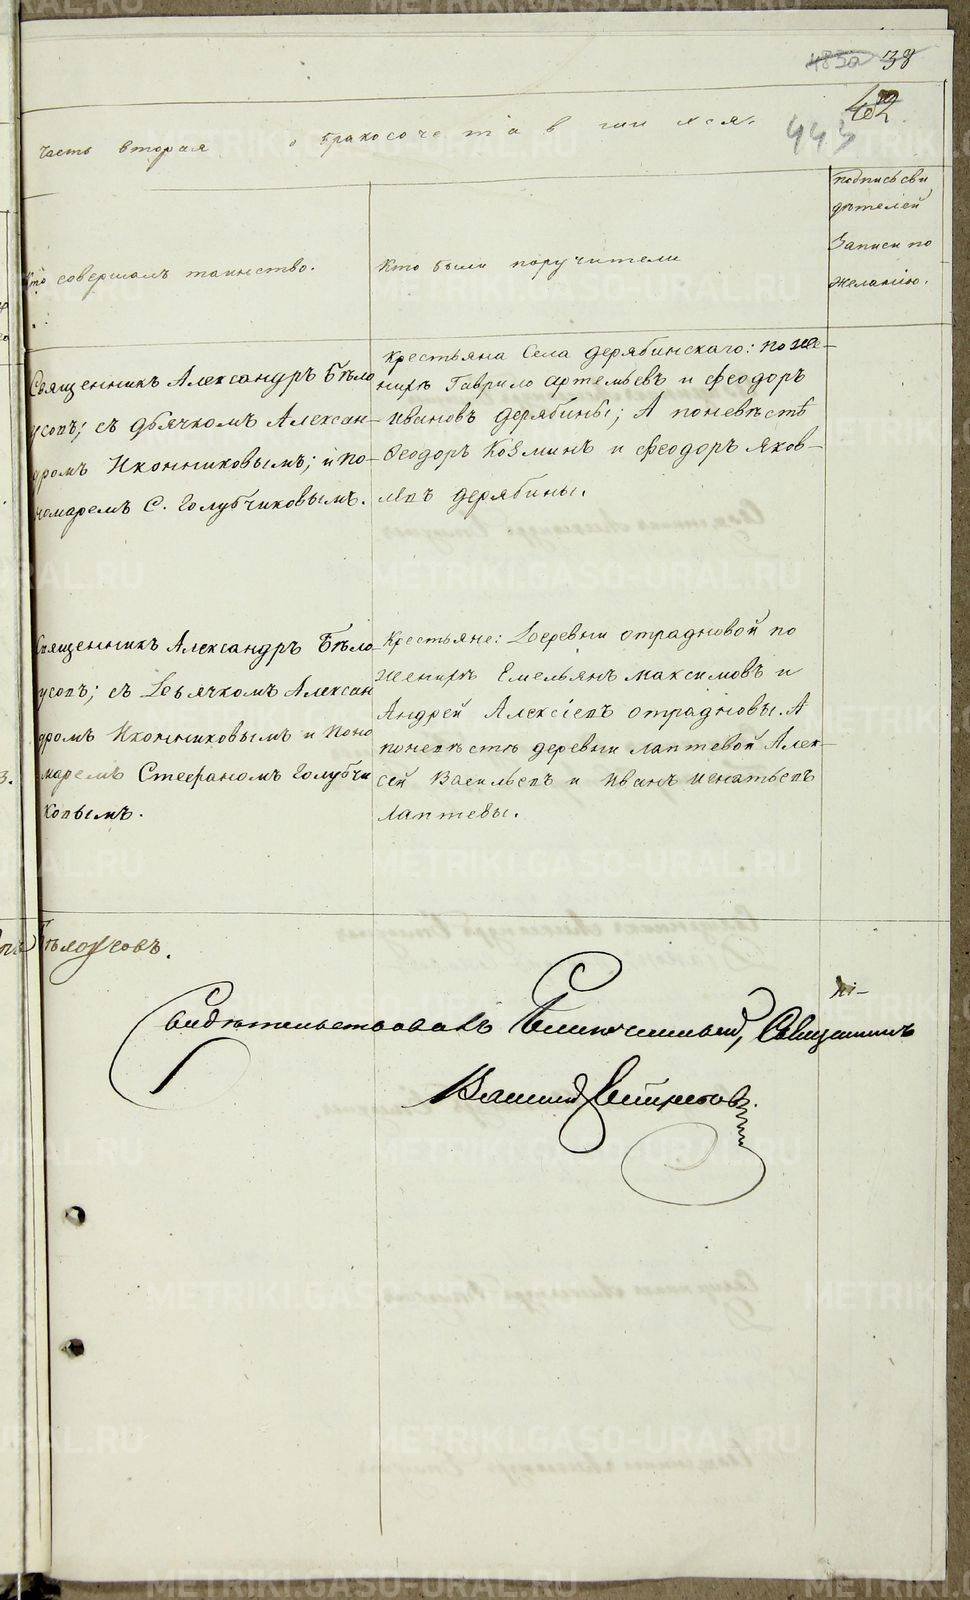 38
443
часть вторая о бракосочетавшихся.
Кто совершалъ таинство.
Кто были поручители
подпись сви
дѣтелей
Записи по
желанію.
Священникъ Александръ Бѣло
усовъ; съ дьячкомъ Алексан-
дромъ Иконниковымъ; и по-
номаремъ С. Голубчиковымъ.
Крестьяна Села дерябинскаго: по же-
нихѣ Гаврило артемьевъ и феодоръ
Ивановъ дерябины; А поневѣстѣ
Феодоръ Козминъ и феодоръ яков-
левъ дерябины.
Священникъ Александръ Бѣло-
усовъ; съ Дьячкомъ Алексан
дромъ Иконниковымъ и Поно
маремъ Стефаномъ Голубчи
ковымъ.
Крестьяне: Деревни отрадновой по
женихѣ Емельянъ максимовъ и
Андрей Алексіевъ отрадновы. А
поневѣстѣ деревни лаптевой Алек-
сей Васильевъ и иванъ игнатьевъ
лаптевы.
Бѣлоусовъ.
Свидѣтельствовалъ Благочинный, Священникъ
METRIKI.GASO-URAL.RU